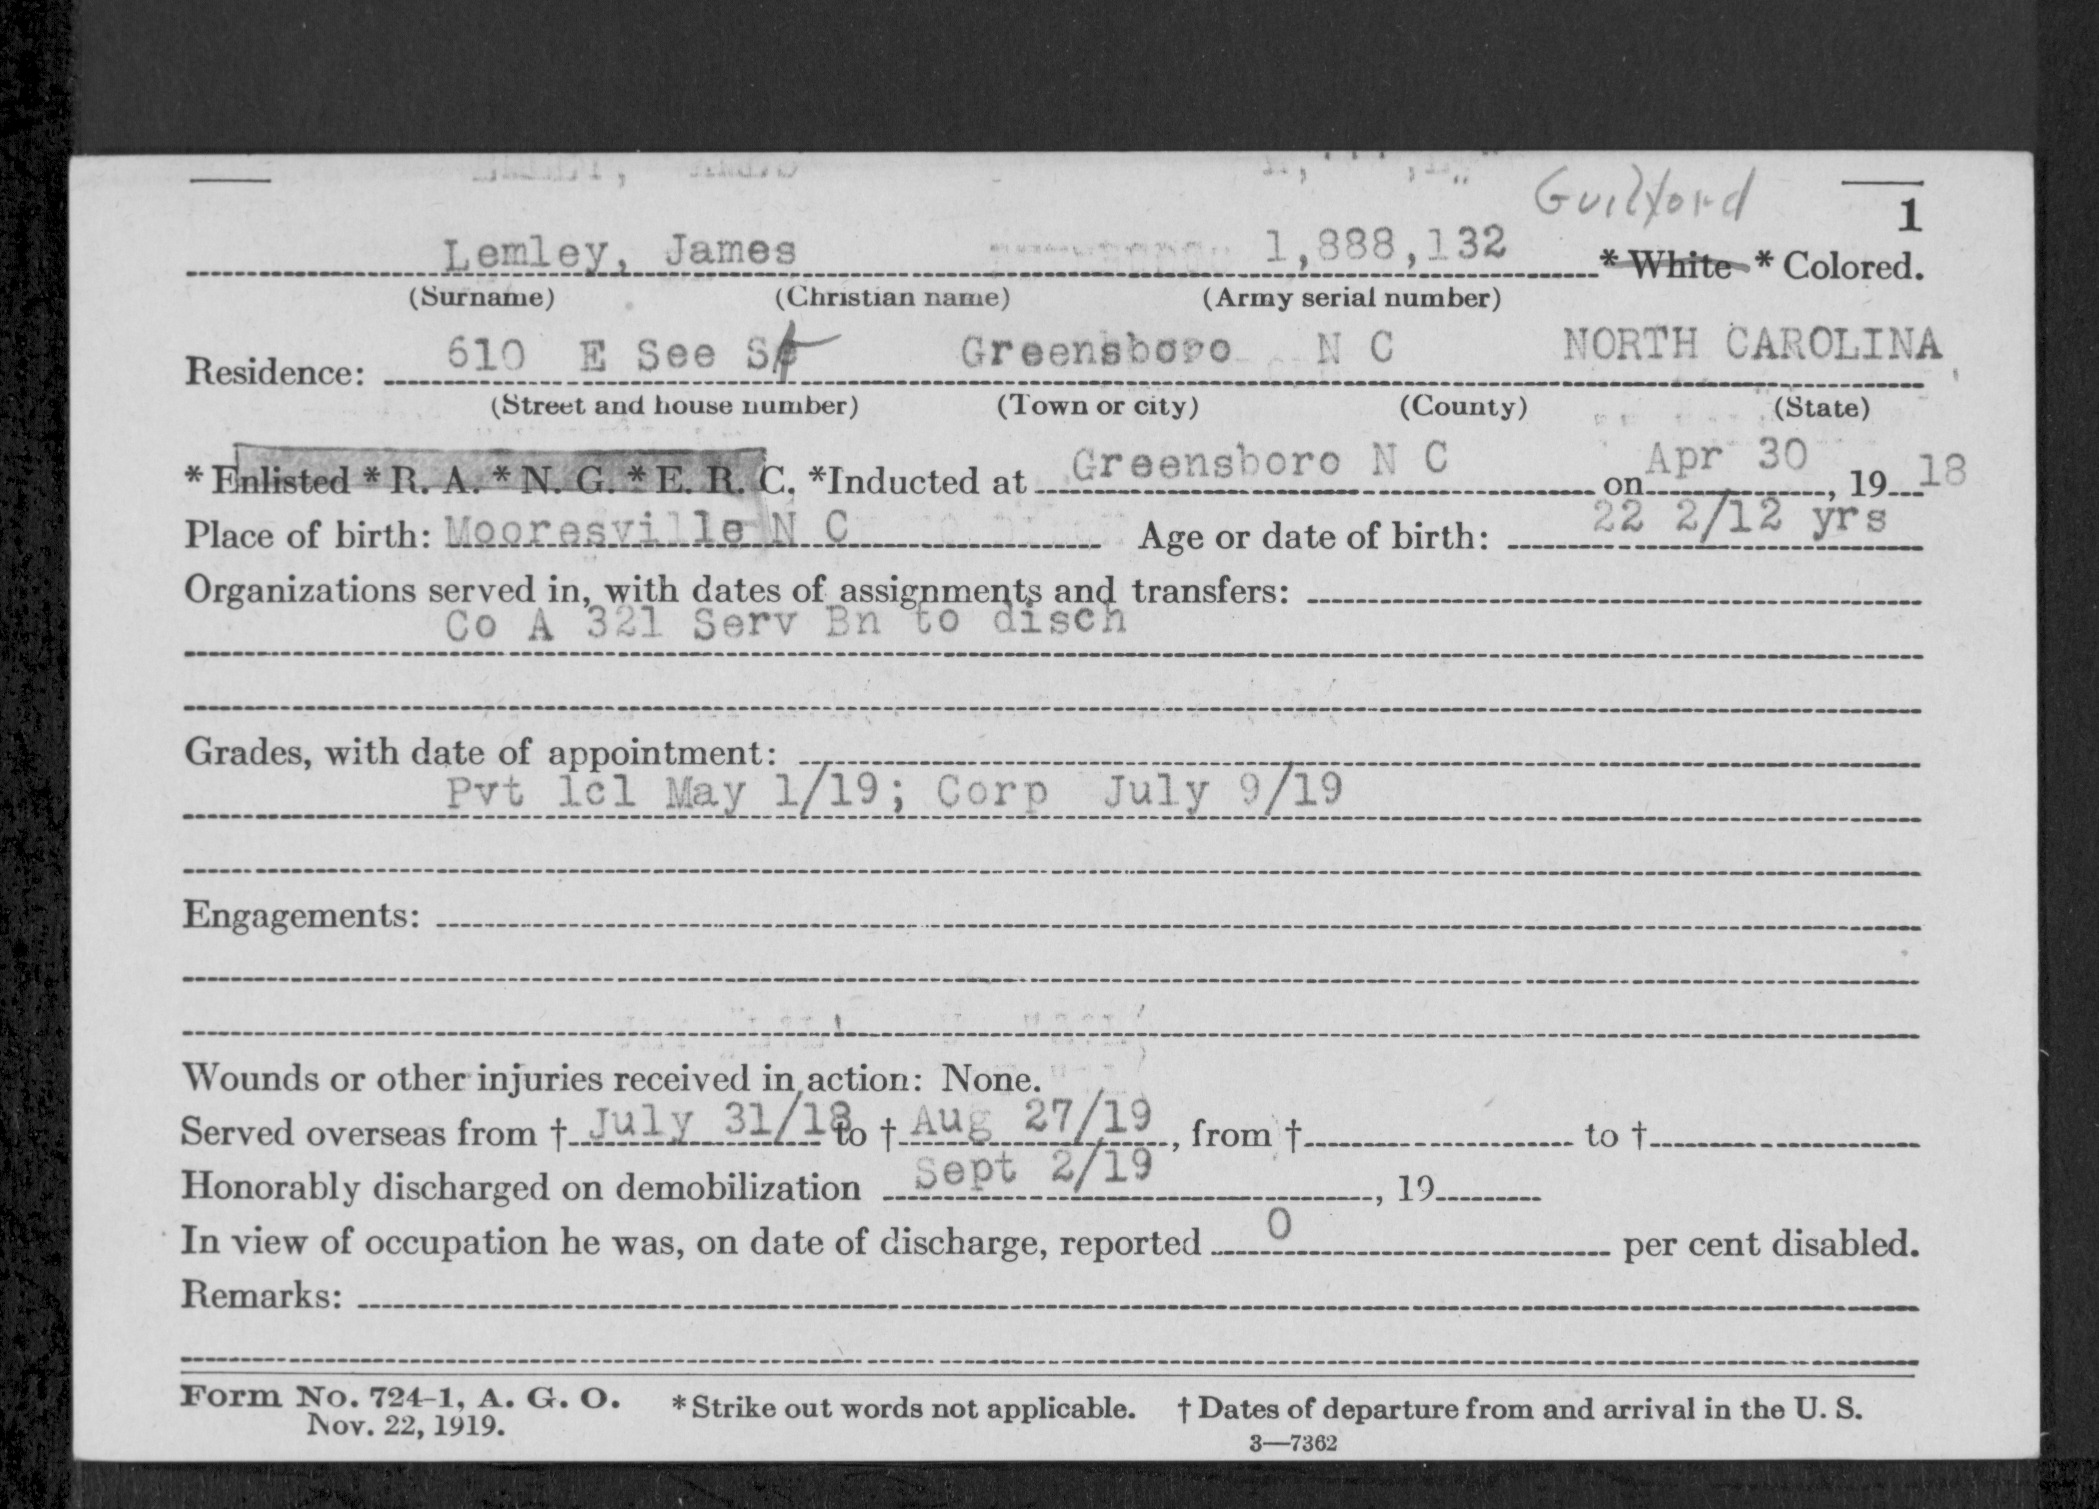 Guilford
1
Lemley, James 1,888,132 * White * Colored.
(Surname) (Christian name) (Army serial number)
Residence: 610 E See St Greensboro N C NORTH CAROLINA
(Street and house number) (Town or city) (County) (State)
* Enlisted * R. A. * N. G. * E. R. C. *Inducted at Greensboro N C on Apr 30, 1918
Place of birth: Mooresville N C Age or date of birth: 22 2/12 yrs
Organizations served in, with dates of assignments and transfers:
Co A 321 Serv Bn to disch
Grades, with date of appointment:
Pvt 1cl May 1/19; Corp July 9/19
Engagements:
Wounds or other injuries received in action: None.
Served overseas from † July 31/18 to † Aug 27/19, from † to †
Honorably discharged on demobilization Sept 2/19, 19
In view of occupation he was, on date of discharge, reported 0 per cent disabled.
Remarks:
Form No. 724-1, A. G. O. * Strike out words not applicable. † Dates of departure from and arrival in the U. S.
Nov. 22, 1919.
3—7362